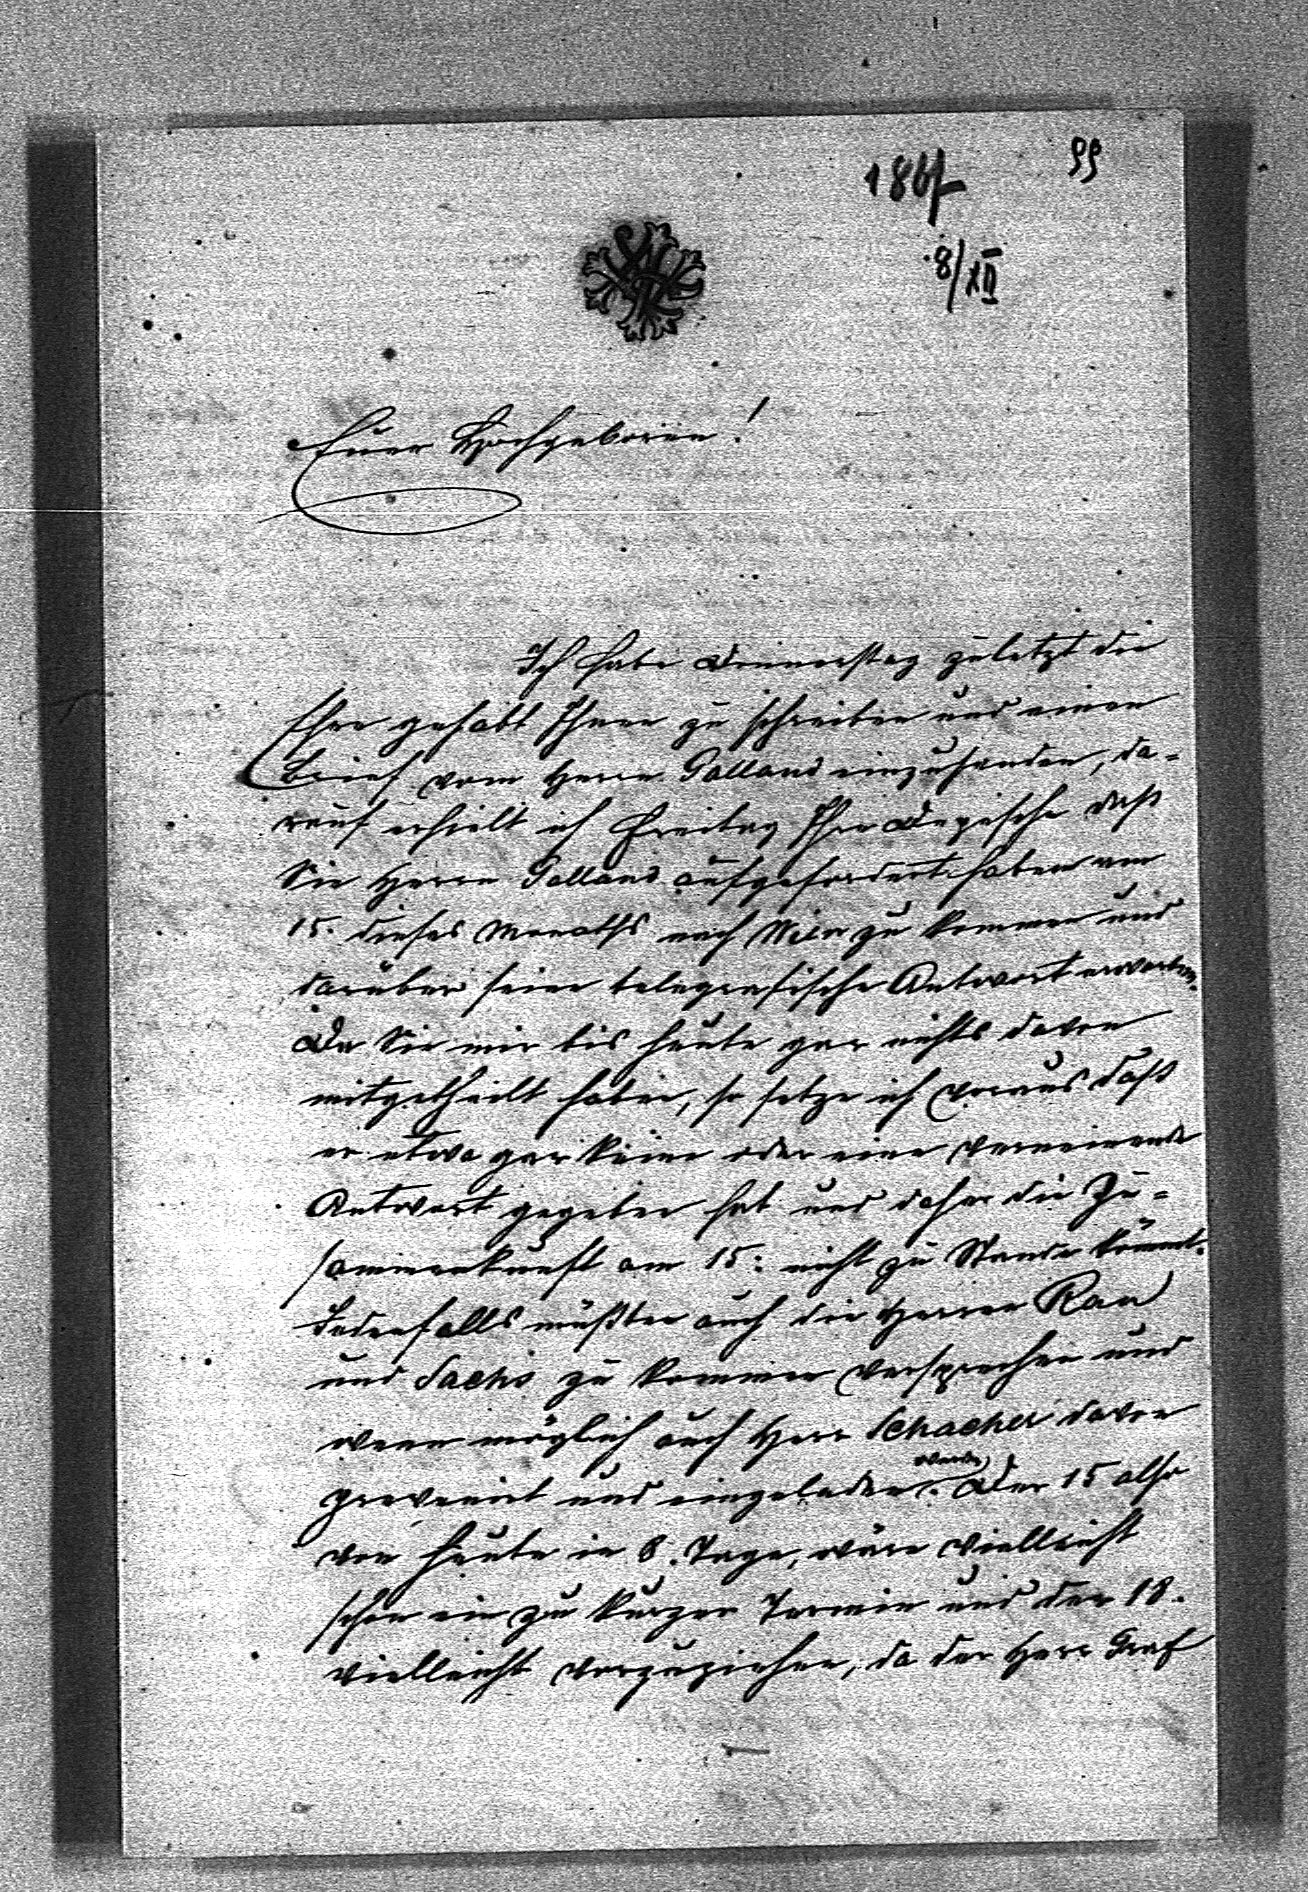 99
1867
8/XII
Euer Hochgeboren!
Ich habe Donnerstag zuletzt die
Ehre gehabt Ihnen zu schreiben und einen
Brief vom Herrn Galland einzusenden, da=
rauf erhielt ich Freitag Ihre Depesche daß
Sie Herrn Galland aufgefordert haben am
15. dieses Monaths nach Wien zu kommen und
darüber seine telegrafische Antwort erwarten.
Da Sie mir bis heute gar nichts davon
mitgetheilt haben, so setze ich voraus daß
er etwa gar keine oder eine verneinende
Antwort gegeben hat und daher die Zu=
sammenkunft am 15. nicht zu Stande kömmt.
Jedenfalls müßten auch die Herren Rau
und Sachs zu kommen versprechen und
wenn möglich auch Herr Schacher davon
prevenirt und eingeladen werden. Der 15 also
von heute in 8. Tage, wäre vielleicht
schon ein zu kurzer Termin und der 18.
vielleicht vorzuziehen, da der Herr Graf